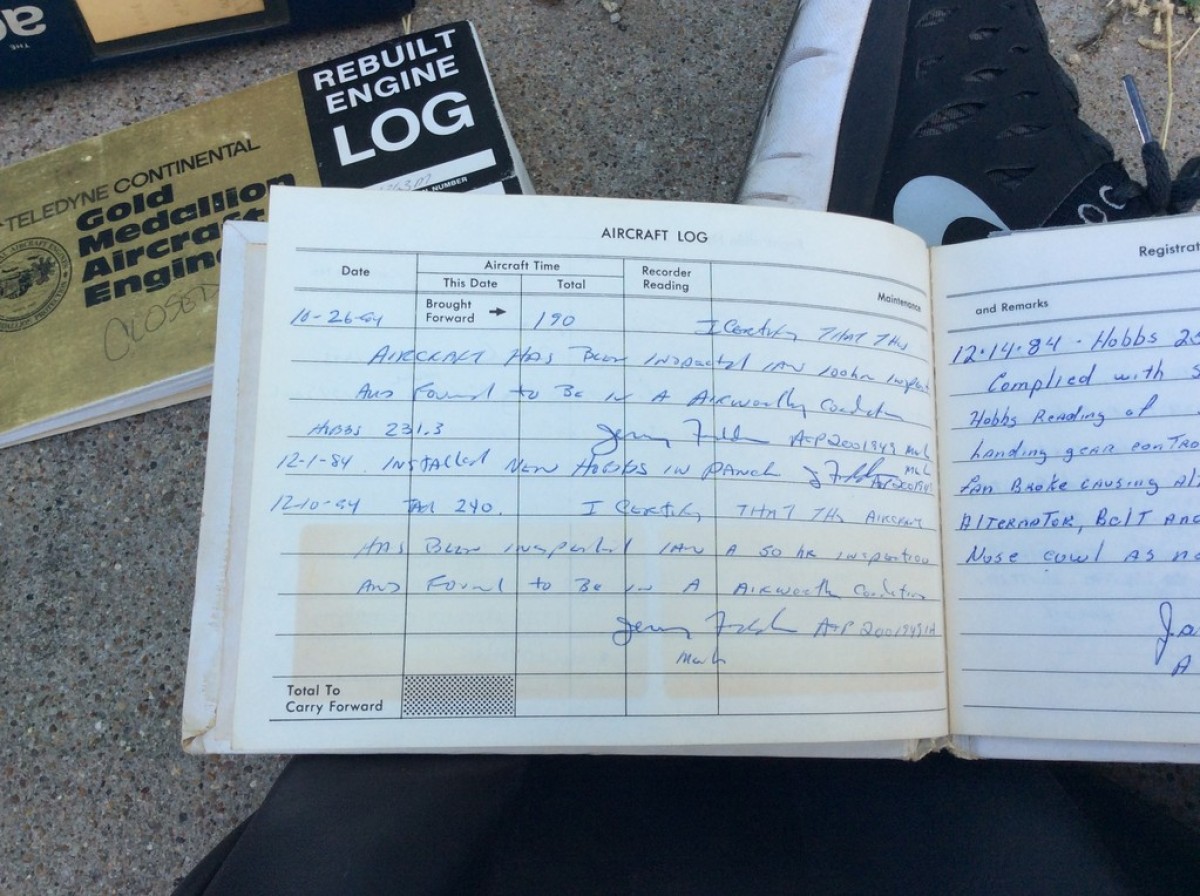 THE
REBUILT
ENGINE
LOG
NUMBER
TELEDYNE CONTINENTAL
Gold
Medallion
Aircraft
Engin
CLOSED
AIRCRAFT LOG
Date
Aircraft Time
This Date
Total
Recorder
Reading
Maintenance
10-26-84
Brought
Forward
190
I Certify THAT THIS
AIRCRAFT HAS Been Inspected IAW 100hr Inspect
And Found to Be in A Airworthy Condition
Hobbs 231.3
A+P 2001949
12-1-84. Installed New Hobbs in Panel
12-10-84
240.
I Certify THAT THIS Aircraft
HAS Been inspected IAW A 50 hr inspection
And Found to Be in A Airworth Condition
A+P
Mech
Total To
Carry Forward
Registrat
and Remarks
12.14.84 - Hobbs 25
Complied with S
Hobbs Reading of
Landing gear contro
Fan Broke causing Al
Alternator, Belt and
Nose cowl as ne
Ja
A